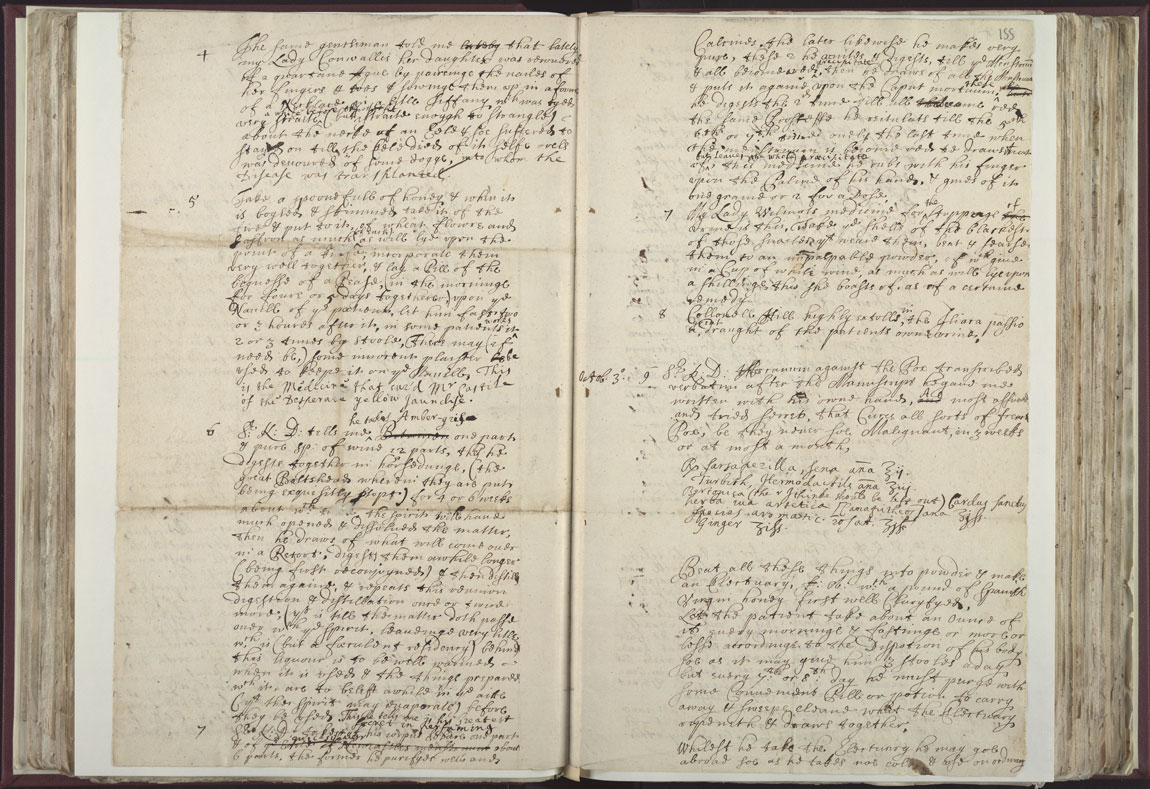 4 The same gentleman told me that lately
my Lady Cornwallis her daughter was
of a quartane Ague by pareinge the nailes of
her fingers & toes & sowinge them up in a
of a tiffany, wch was tyed
very straite (but straite enough to strangle)
about the necke of an Eele & soe suffered to
stay on till the Eele died of it selfe
was devoured of some doggs, into whom the
Disease was transplanted.
5 Take a spoonefull of honey, & when it
is boyled & skimmed take it of the
fire & put to it, of wheat flowre and
Saffron as much as will lye upon the
point of a knife, incorporate them
very well together, & lay a Pill of the
bignesse of a Pease, in the morninge
for foure or 5 days together upon ye
Navill of ye patient, let him fast two
or 3 houres after it, in some patients it workes
2 or 3 times by stoole, There may (if
need be,) some innocent plaister be
used to keepe it on ye Navill, This
is the Medicine that cur'd Mr
of the desperate yellow Jaundise.
he takes Amber-grise
6 Sr. K: D: tells me one part
& pure Sp: of wine 12 parts, this he
digests together in horsedunge, (the
great Boltshead wherein they are put
being exquisitly stopt:) for 5 or 6 weeks
about the Spirits will have
much opened & dissolved the matter,
then he draws of what will come over
in a Retort, digests them awhile longer
(being first reconjoyned) & then distills
them againe, & repeats this reunion
digestion & distillation once or twice
more, (yt is till the matter doth passe
over with ye spirit, leaveinge very little
wch is but a foeculent residency) behind
this liquour is to be well warmed
when it is used & the things prepared
wth it, are to be left awhile in ye aire
(yt the spirit may evaporate) before
they be used.
7 Sr. K. D. one part
& of about
6 parts. the former he purifyes well and
155
Calcines, the later likewise he makes very
pure, these 2 he unites & digests, till ye Menstruum
& all become red, then he draws of all the Menstruum
& put it againe upon the Caput mortuum, these
he digests the 2 time till all red,
the same Processe he reiterats till the 5th
6th or 7th time onely the last time when
the menstruum is become red he draws it not
but leaves the whole precipitate
of this medicine he rubs with his finger
upon the Palme of his hand, & gives of it
one graine or 2 for a Dose.
7 My Lady Wilmots medicine for the stoppage of
Urine is this, Take ye shells of the blackest
of those Snailes yt weare them, beat & searse
them to an impalpable powder, of wch give
in a Cup of white wine, as much as will lye upon
a shillinge this she boasts of, as of a certaine
remedy.
8 Collonell Hill highly extolls, in the Iliaca passio
a great draught of the patients owne urine.
Octob. 3d. 9 Sr. K. D. Arcanum against the Pox transcribed
verbatim after the Manuscript he gave me
written with his owne hand, And most assured
and tried secret, that Cures all sorts of French
Pox, be they never soe Malignant, in 3 weeks
or at most a month,
Rx Sarsaperilla, Sena ana ʒij.
Turbith, Hermodactils ana ʒiij.
herba iva artetica (Camapitheos) ana
species aromatic: rosat. ʒss
Ginger ʒiss.
Beat all these things into powder & make
an Electuary, with a pound of Spanish
Virgin honey first well Clarifyed,
Let the patient take about an Ounce of
it every morninge & fastinge or more or
lesse accordinge to the Dispotion of his body
soe as it may give him 3 stooles a day
but every 7th or 8th: day he must purge with
some Convenient Pill or potion to carry
away & sweepe cleane what the Electuary
ripeneth & draws together,
Whilest he take the Electuary he may goe
abroad soe as he takes noe cold, & use an ordinary